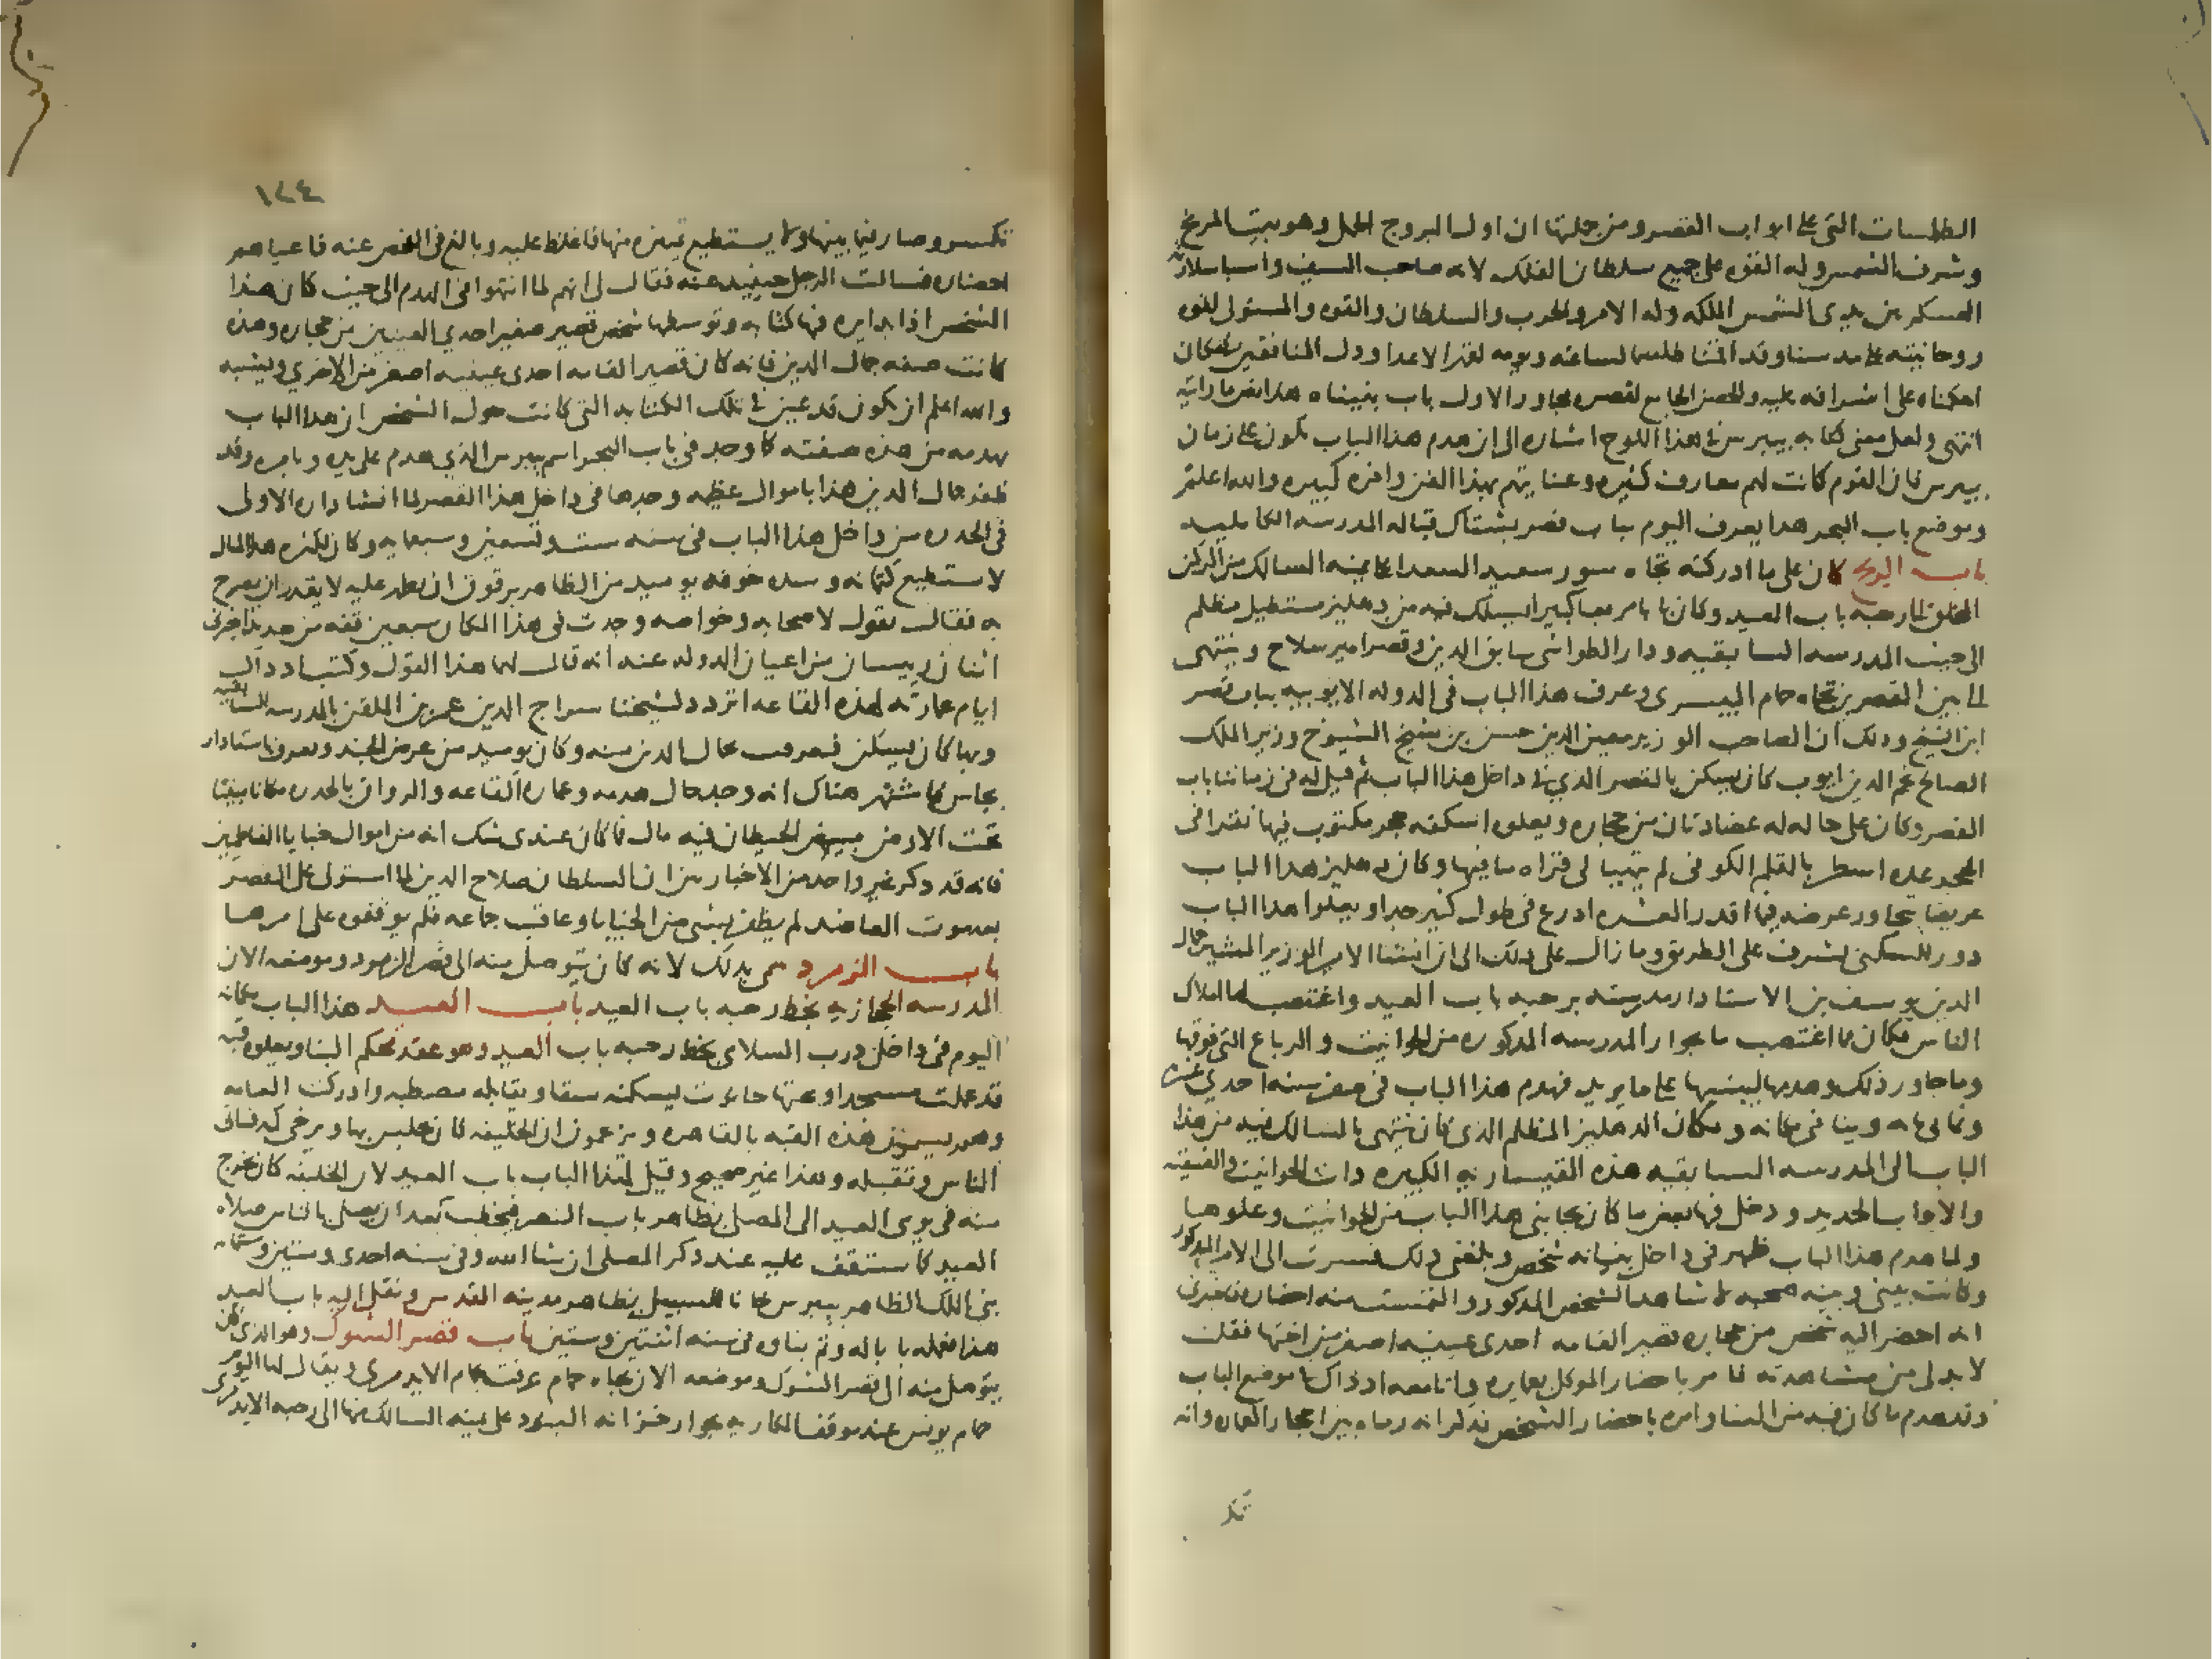 الطلسمات التى على ابواب القصر ومن جملتها ان اول البروج الحمل وهو بيت المريخ
وشرف الشمس وله القوه على جميع سلطان الفلك لانه صاحب السيف واسباسلارية
العسكر بين يدى الشمس الملكه وله الامر والحرب والسلطان والقوه والمستولى لقوه
روحانيته على مدينتنا وقد اقمنا طلسما لساعته ويومه لقهر الاعدا وذل المنافقين فى مكان
احكمناه على اشرافه عليه والحصن الجامع لقصر مجاور الاول باب بنيناه هذا نص ما رايته
انتهى ولعل معنى كتابه بيبرس فى هذا اللوح اشاره الى ان هدم هذا الباب يكون على زمان
بيبرس فان القوم كانت لهم معارف كثيره وعنايتهم بهذا الفن وافره كبيره والله اعلم
وموضع باب البحر هذا يعرف اليوم بباب قصر بشتاك قباله المدرسه الكامليه
باب الريح كان على ما ادركته تجاه سور سعيد السعدا على يمنه السالك من الركن
المخلق الى رحبه باب العيد وكان بابا مربعا كبيرا يسلك فيه من دهليز مستطيل مظلم
الى حيث المدرسه السابقيه ودار الطواشى سابق الدين وقصر امير سلاح وينتهى
الى بين القصرين تجاه حمام البيسرى وعرف هذا الباب فى الدوله الايوبيه بباب قصر
ابن الشيخ وذلك ان الصاحب الوزير معين الدين حسن بن شيخ الشيوخ وزير الملك
الصالح نجم الدين ايوب كان يسكن بالقصر الذى فى داخل هذا الباب ثم قيل له فى زماننا باب
القصر وكان على حاله له عضادتان من حجاره ويعلوه اسكفه حجر مكتوب فيها نقرا فى
الحجر عده اسطر بالقلم الكوفى لم يتهيا لى قراه ما فيها وكان دهليز هذا الباب
عريضا يتجاوز عرضه فيما اقدر العشره اذرع فى طول كبير جدا ويعلوا هذا الباب
دور للسكنى تشرف على الطريق وما زال على ذلك الى ان انشا الامير الوزير المشير جمال
الدين يوسف بن الاستادار مدرسته برحبه باب العيد واغتصب لها املاك
الناس فكان مما اغتصب ما بجوار المدرسه المذكوره من الحوانيت والرباع التى فوقها
وما جاور ذلك وهدمها ليبنيها على ما يريد فهدم هذا الباب فى صفر سنه احدى عشره
وثمانمايه وبنا فى مكانه ومكان الدهليز المظلم الذى كان ينتهى بالسالك فيه من هذا
الباب الى المدرسه السابقيه هذه القيساريه الكبيره ذات الحوانيت والسقيفه
والابواب الحديد ودخل فيها بعض ما كان بجانبى هذا الباب من الحوانيت وعلوها
ولما هدم هذا الباب ظهر فى داخل بنيانه شخص وبلغنى ذلك فسرت الى الامير المذكور
وكانت بينى وبينه صحبه لاشاهد الشخص المذكور والتمست منه احضاره فاخبرنى
انه احضر اليه شخص من حجاره قصير القامه احدى عينيه اصغر من اختها فقلت
لا بد لى من مشاهدته فامر باحضار الموكل بعمايره وانا معه اذ ذاك بموضع الباب
وقد هدم ما كان فيه من البنا وامره باحضار الشخص فذكر انه رماه بين احجار العماره وانه
تكـ
١٢٤
تكسر وصار فيما بينها ولا يستطيع تميزه منها فاغلظ عليه وبالغ فى الفحص عنه فاعياهم
احضاره فسالت الرجل حينيذ عنه فقال لى انهم لما انتهوا فى الهدم الى حيث كان هذا
الشخص اذا بدايره فيها كتابه وتوسطها شخص قصير صغير احدى العينين من حجاره وهذه
كانت صفه جمال الدين فانه كان قصير القامه احدى عينيه اصغر من الاخرى ويشبه
والله اعلم ان يكون قد عين فى تلك الكتابه التى كانت حول الشخص ان هذا الباب
يهدمه من هذه صفته كما وجد فى باب البحر اسم بيبرس الذى هدم على يده وبامره وقد
ظفر جمال الدين هذا باموال عظيمه وجدها فى داخل هذا القصر لما انشا داره الاولى
فى الحدره من داخل هذا الباب فى سنه ست وتسعين وسبعمايه وكان لكثره هذا المال
لا يستطيع كتمانه ومن شده خوفه يوميد من الظاهر برقوق ان يظهر عليه لا يقدر ان يصرح
به فقال يقول لاصحابه وخواصه وجدت فى هذا المكان سبعين قفه من حديد اخبرنى
اثنان رييسان من اعيان الدوله عنه انه قال لهما هذا القول وكنت اذ ذاك
ايام عمارته لهذه القاعه اتردد لشيخنا سراج الدين عمر بن الملقن بالمدرسه السابقيه
وبها كان يسكن فتعرفت بجمال الدين منه وكان يوميد من عرض الجند ويعرف باستادار
بجاس كما شتهر هناك انه وجد حال هدمه وعماره القاعه والرواق بالحدره مكانا مبنيا
تحت الارض مبيض الحيطان فيه مال فما كان عندى شك انه من اموال خبايا الفاطميين
فانه قد ذكر غير واحد من الاخبارين ان السلطان صلاح الدين لما استولى على القصر
بعد موت العاضد لم يظفر بشى من الخبايا وعاقب جماعه فلم يوقفوه على امرها
باب الزمرد سمى بذلك لانه كان يتوصل منه الى قصر الزمرد وموضعه الان
المدرسه الحجازيه بخط رحبه باب العيد باب العيد هذا الباب مكانه
اليوم فى داخل درب السلامى بخط رحبه باب العيد وهو عقد محكم البنا ويعلوه قبه
قد عملت مسجدا وتحتها حانوت يسكنه سقا ويقابله مصطبه وادركت العامه
وهم يسمون هذه القبه بالقاهره ويزعمون ان الخليفه كان يجلس بها ويرخى كمه فتاتى
الناس وتقبله وهذا غير صحيح وقيل لهذا الباب باب العيد لان الخليفه كان يخرج
منه فى يومى العيد الى المصلى بظاهر باب النصر فيخطب بعد ان يصلى بالناس صلاه
العيد كما ستقف عليه عند ذكر المصلى ان شا الله وفى سنه احدى وستين وستمايه
بنى الملك الظاهر بيبرس خانا للسبيل بظاهر مدينه القدس ونقل اليه باب العيد
هذا فعمله بابا له وتم بناوه فى سنه اثنتين وستين باب قصر الشوك وهو الذى كان
يتوصل منه الى قصر الشوك وموضعه الان تجاه حمام عرفت بحمام الايدمرى ويقال لها اليوم
حمام يونس عند موقف المكاريه بجوار خزانه البنود على يمنه السالك منها الى رحبه الايدمرى